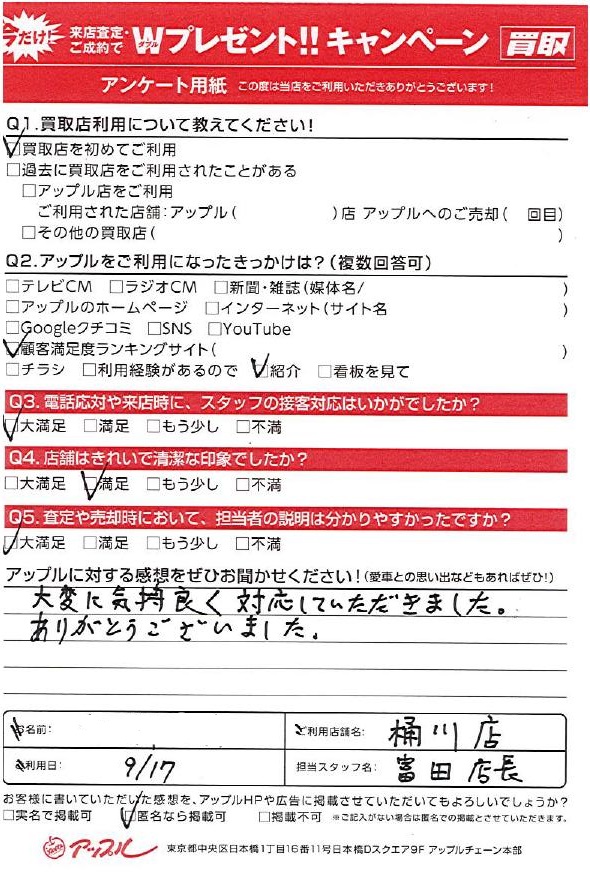 今だけ! 来店査定・ご成約で Wアップルプレゼント!! キャンペーン 買取
アンケート用紙 この度は当店をご利用いただきありがとうございます!
Q1.買取店利用について教えてください!
☑買取店を初めてご利用
□過去に買取店をご利用されたことがある
□アップル店をご利用
ご利用された店舗:アップル( )店 アップルへのご売却( 回目)
□その他の買取店( )
Q2.アップルをご利用になったきっかけは?(複数回答可)
□テレビCM □ラジオCM □新聞・雑誌(媒体名/ )
□アップルのホームページ □インターネット(サイト名 )
□Googleクチコミ □SNS □YouTube
☑顧客満足度ランキングサイト( )
□チラシ □利用経験があるので ☑紹介 □看板を見て
Q3.電話応対や来店時に、スタッフの接客対応はいかがでしたか?
☑大満足 □満足 □もう少し □不満
Q4.店舗はきれいで清潔な印象でしたか?
□大満足 ☑満足 □もう少し □不満
Q5.査定や売却時において、担当者の説明は分かりやすかったですか?
☑大満足 □満足 □もう少し □不満
アップルに対する感想をぜひお聞かせください!(愛車との思い出などもあればぜひ!)
大変に気持良く対応していただきました。
ありがとうございました。
お名前: ご利用店舗名: 桶川店
ご利用日: 9/17 担当スタッフ名: 富田店長
お客様に書いていただいた感想を、アップルHPや広告に掲載させていただいてもよろしいでしょうか?
□実名で掲載可 ☑匿名なら掲載可 □掲載不可 ※ご記入がない場合は匿名での掲載とさせていただきます。
アップル 東京都中央区日本橋1丁目16番11号日本橋Dスクエア9F アップルチェーン本部